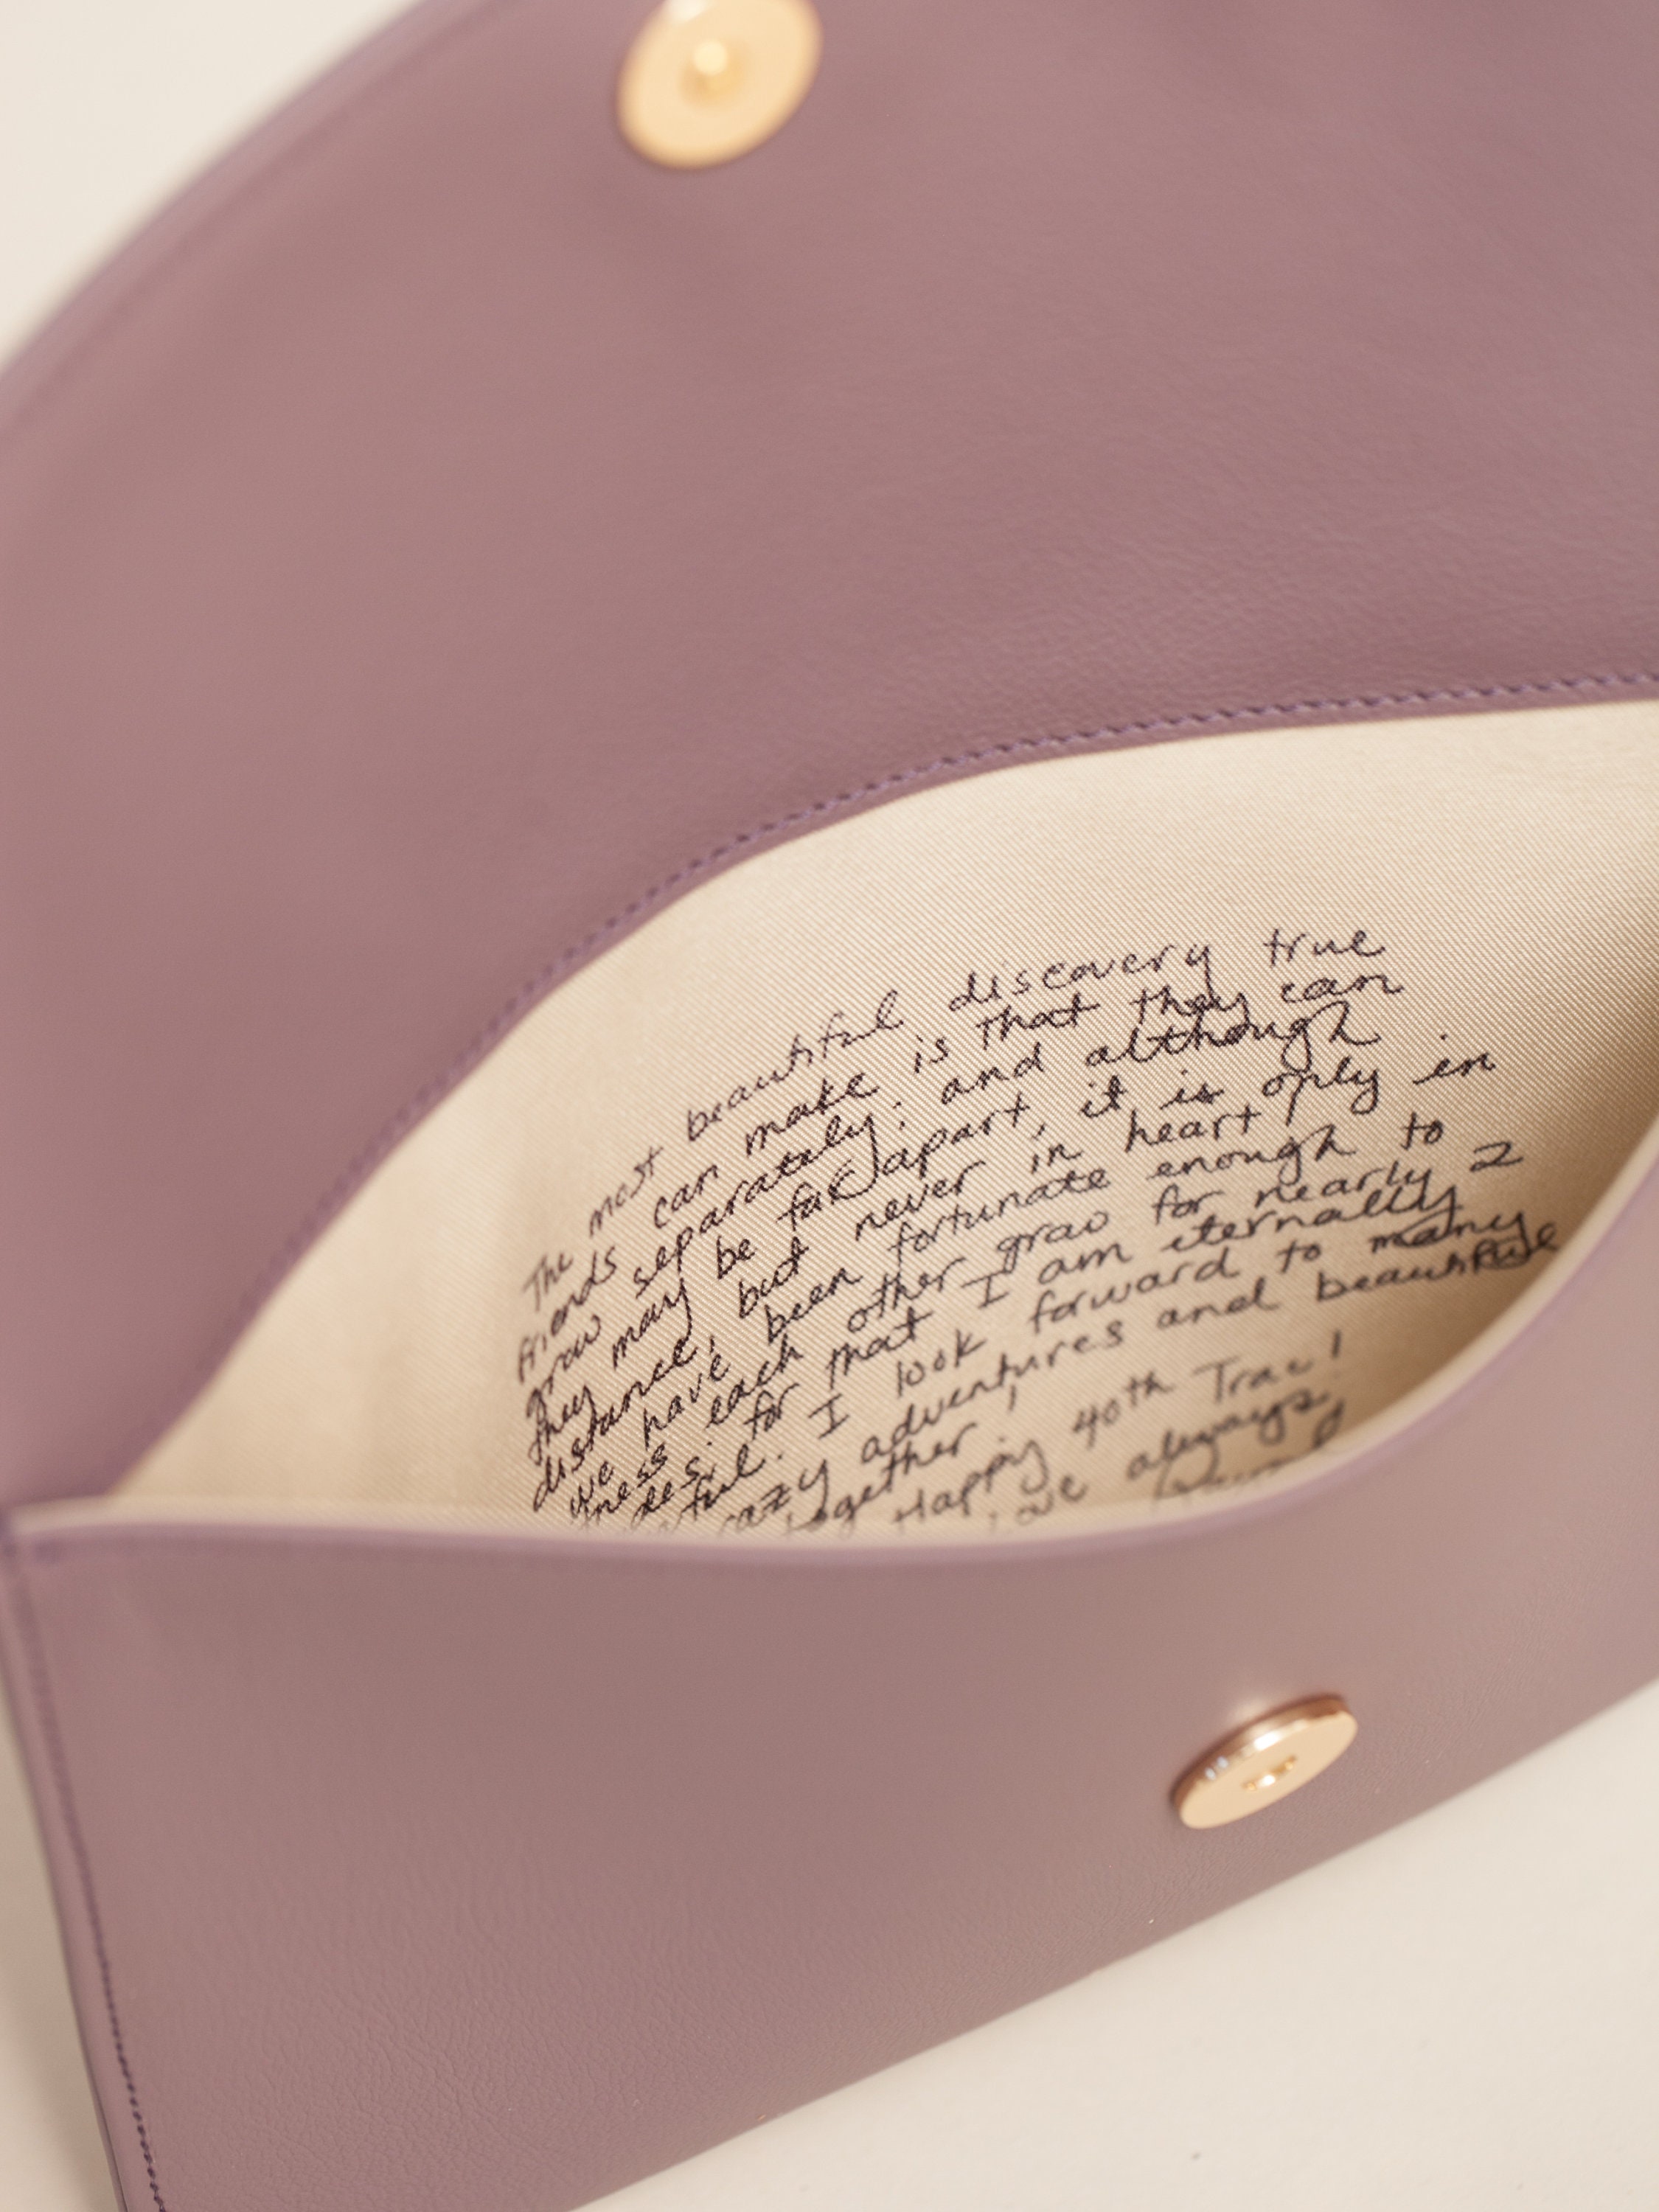 The most beautiful discovery true
friends can make is that they can
grow separately: and although
they may be far apart, it is only in
distance, but never in heart
we have been fortunate enough to
tness each other grow for nearly 2
des. for that I am eternally
teful. I look forward to many
razy adventures and beautiful
together!
Happy 40th Trac!
Love always